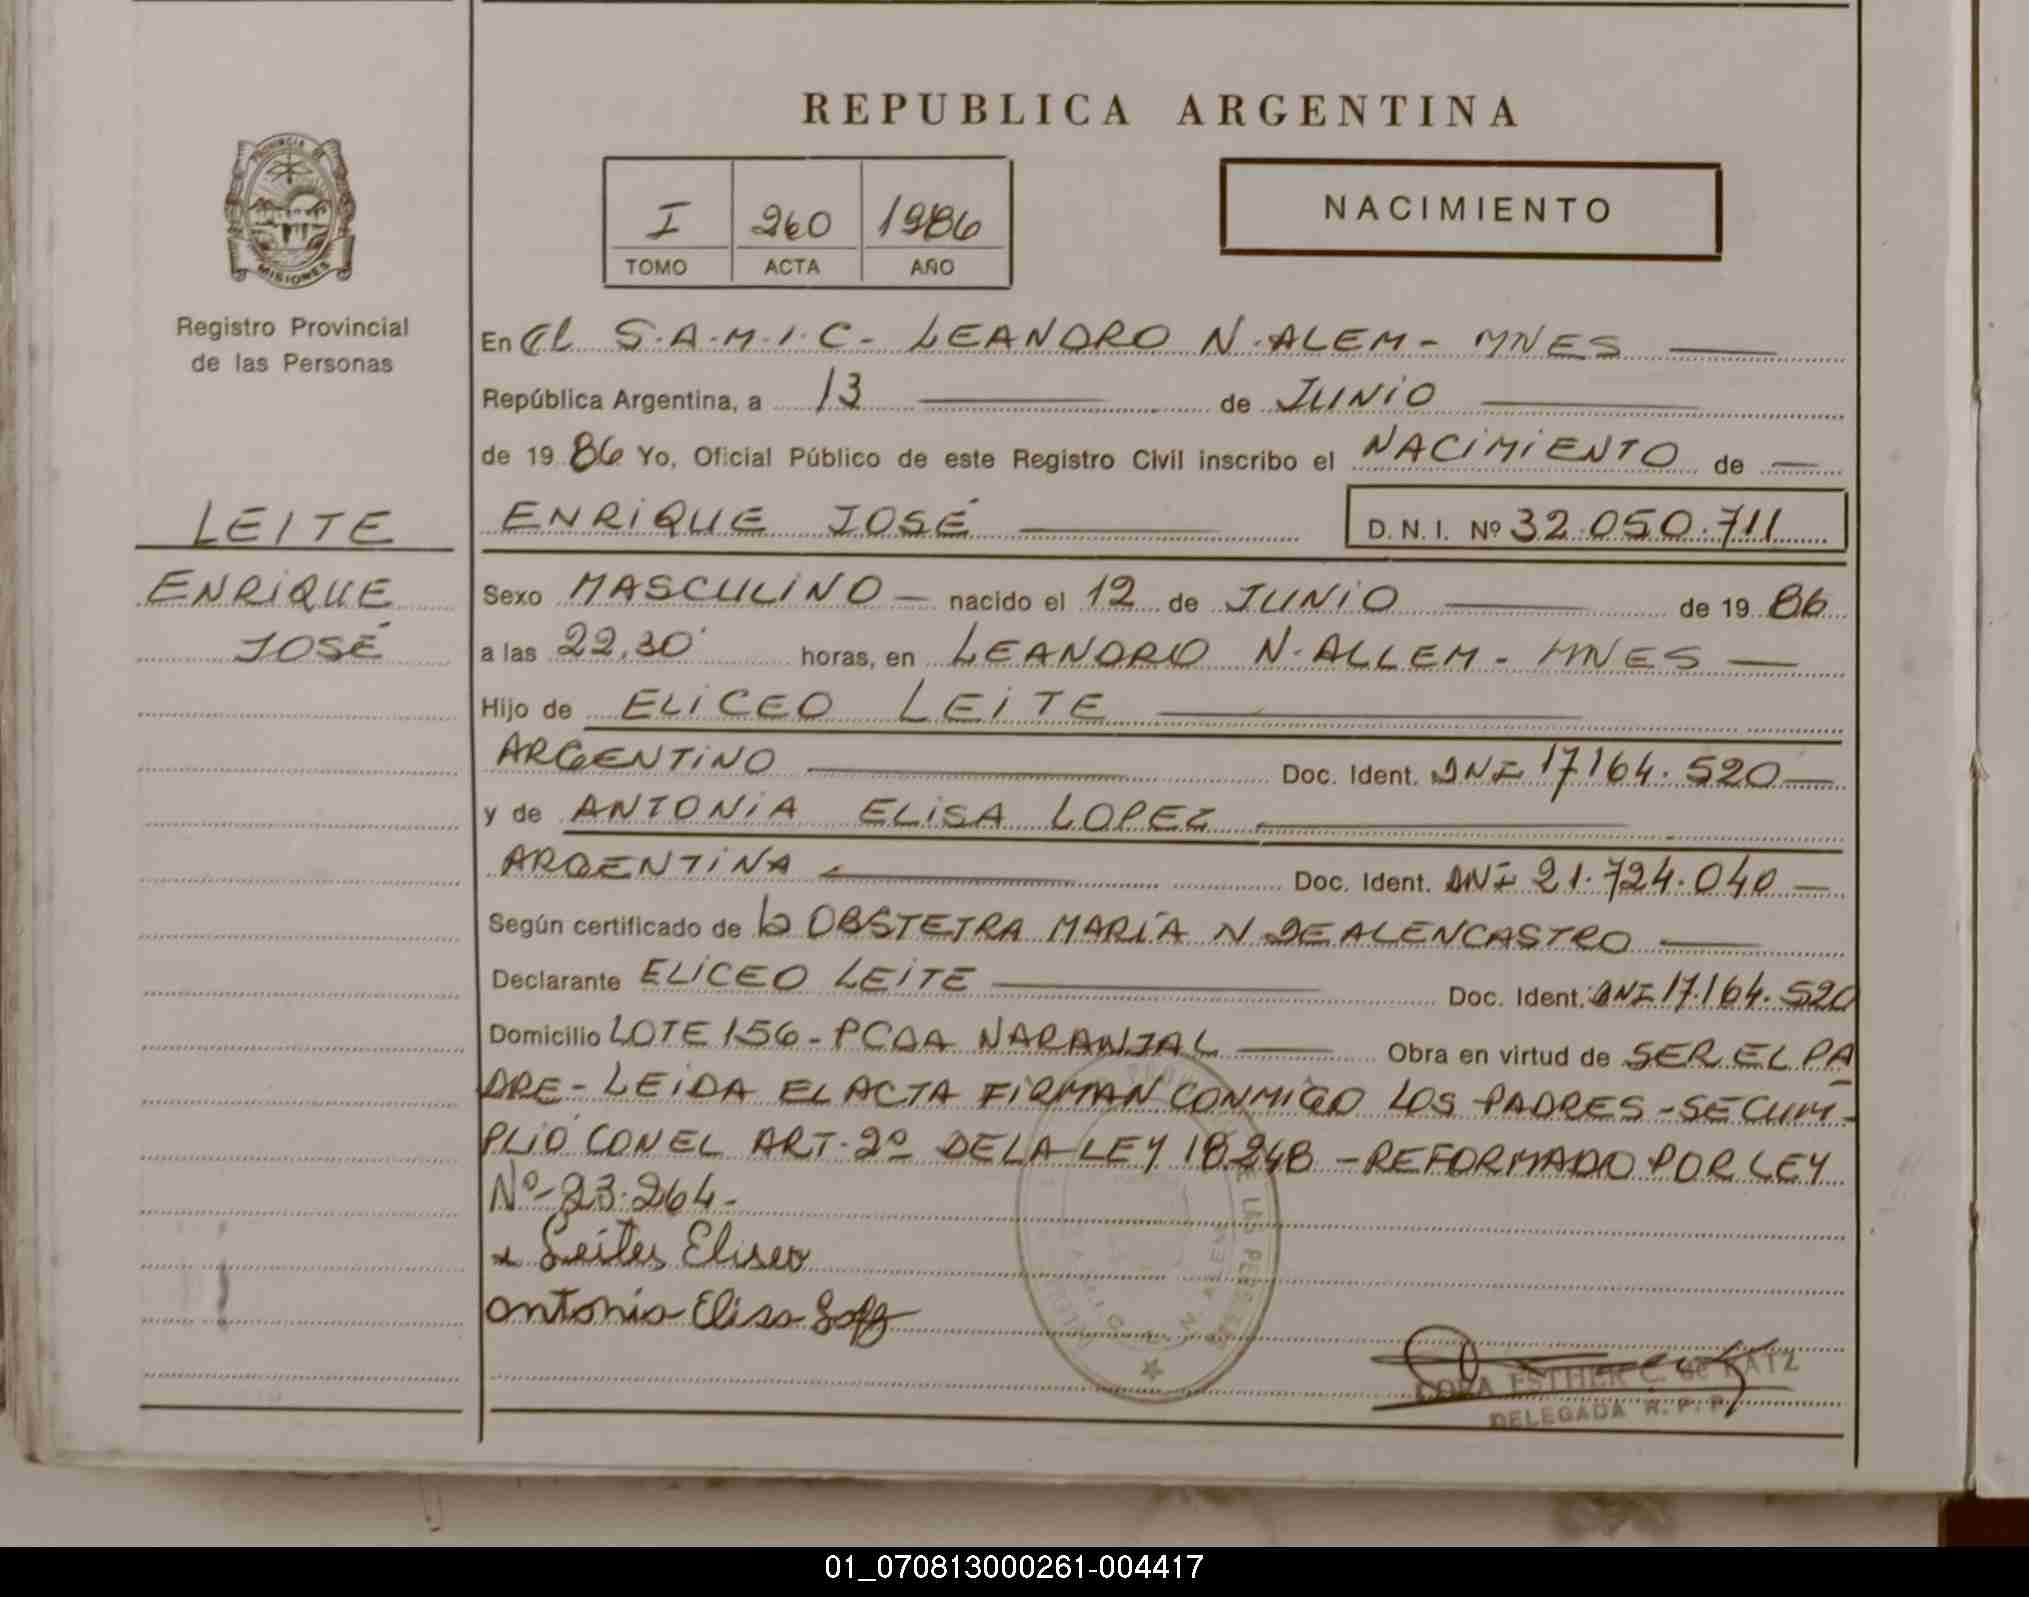 REPUBLICA ARGENTINA
PROVINCIA DE
MISIONES
Registro Provincial
de las Personas
I 260 1986
TOMO ACTA AÑO
NACIMIENTO
En El S.A.M.I.C- LEANDRO N. ALEM - MNES
República Argentina, a 13 de JUNIO
de 19 86 Yo, Oficial Público de este Registro Civil inscribo el NACIMIENTO de
ENRIQUE JOSÉ D. N. I. Nº 32.050.711
LEITE
ENRIQUE
JOSÉ
Sexo MASCULINO nacido el 12 de JUNIO de 19 86
a las 22,30 horas, en LEANDRO N. ALLEM - MNES
Hijo de ELICEO LEITE
ARGENTINO Doc. Ident. DNI 17164.520
y de ANTONIA ELISA LOPEZ
ARGENTINA Doc. Ident. DNI 21.724.040
Según certificado de la OBSTETRA MARÍA N DE ALENCASTRO
Declarante ELICEO LEITE Doc. Ident. DNI 17.164.520
Domicilio LOTE 156 - PCDA NARANJAL Obra en virtud de SER EL PA
DRE - LEIDA EL ACTA FIRMAN CONMIGO LOS PADRES - SE CUM-
PLIÓ CON EL ART. 2º DE LA LEY 18.248 - REFORMADO POR LEY
Nº 23.264-
Leites Eliseo
Antonia Elisa Lopez
DE LAS PERSONAS
CORA ESTHER C. de KATZ
DELEGADA R. P. P.
01_070813000261-004417